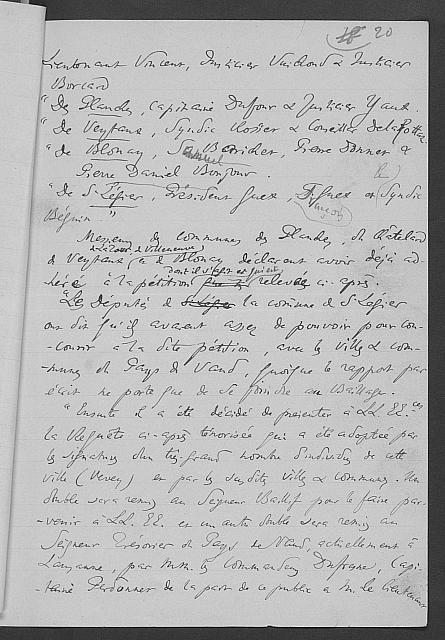 20
Lieutenant Vincent, Justicier Vuichoud & Justicier
Borcard
"Des Planches, Capitaine Dufour & Justicier Yaux.
"De Veytaux, Syndic Rosier & Conseiller Delafottaz
"de Blonay, Samuel Bericher, Pierre Bonner &
Pierre Daniel Bonjour.
"De St Légier, Président Guex, Guex et Syndic
Béguin."
Messieurs des communes des Planches, du Châtelard
La Tour, Villeneuve
& Veytaux & de Blonay déclarent avoir déjà ad-
dont il s'agit et qui est
héré à la pétition relevée ci-après.
"Le Députés de la comune de St Legier
ont dit qu'il avaient assez de pouvoir pour con-
-courir à la dite pétition, avec les villes & com-
-munes du Pays de Vaud, quoique le rapport par
écrit ne porte que de se joindre au Bailliage.
"Ensuite il a été décidé de présenter à LL. EE.ces
la Requête ci-après ténorisée qui a été adoptée par
les signatures d'un très grand nombre d'individus de cette
ville (Vevey) et par les susdites villes & communes. Un
double sera remis au Seigneur Baillif pour le faire par-
-venir à LL. EE. et un autre double sera remis au
Seigneur Trésorier du Pays de Vaud actuellement à
Lausanne, par MM. les Commandants Dufresne, Capi-
-taine Perdonnet de la part de ce public & M. le lieutenant